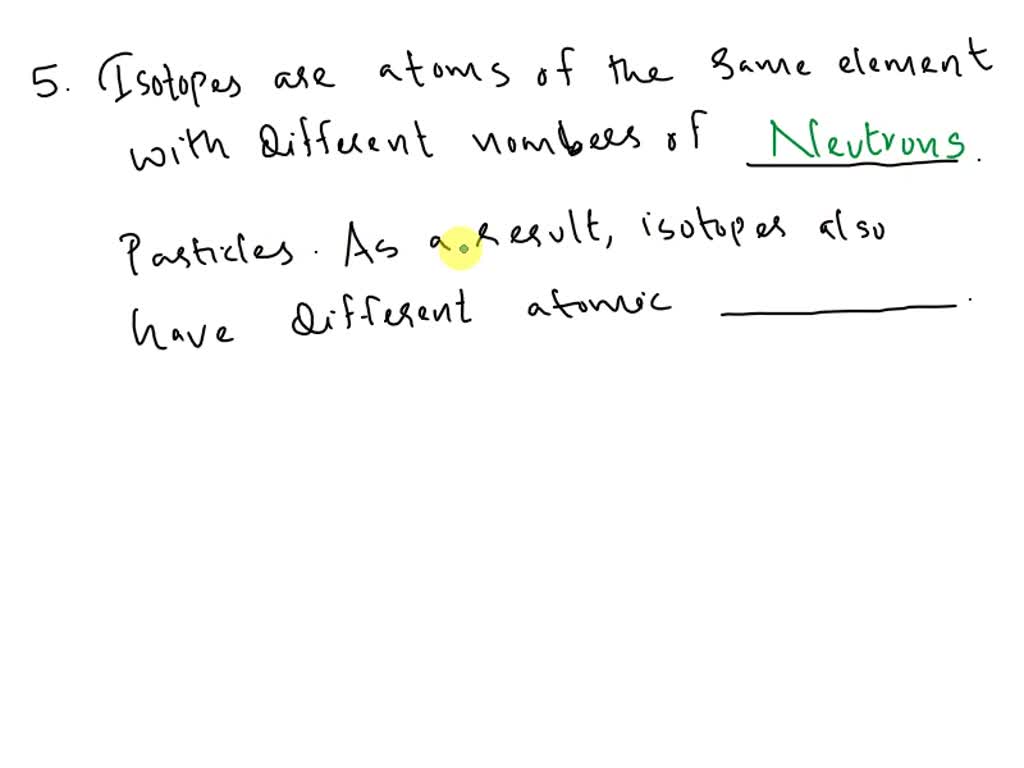 5. Isotopes are atoms of the same element
with different numbers of Neutrons.
Particles. As a result, isotopes also
have different atomic ______.